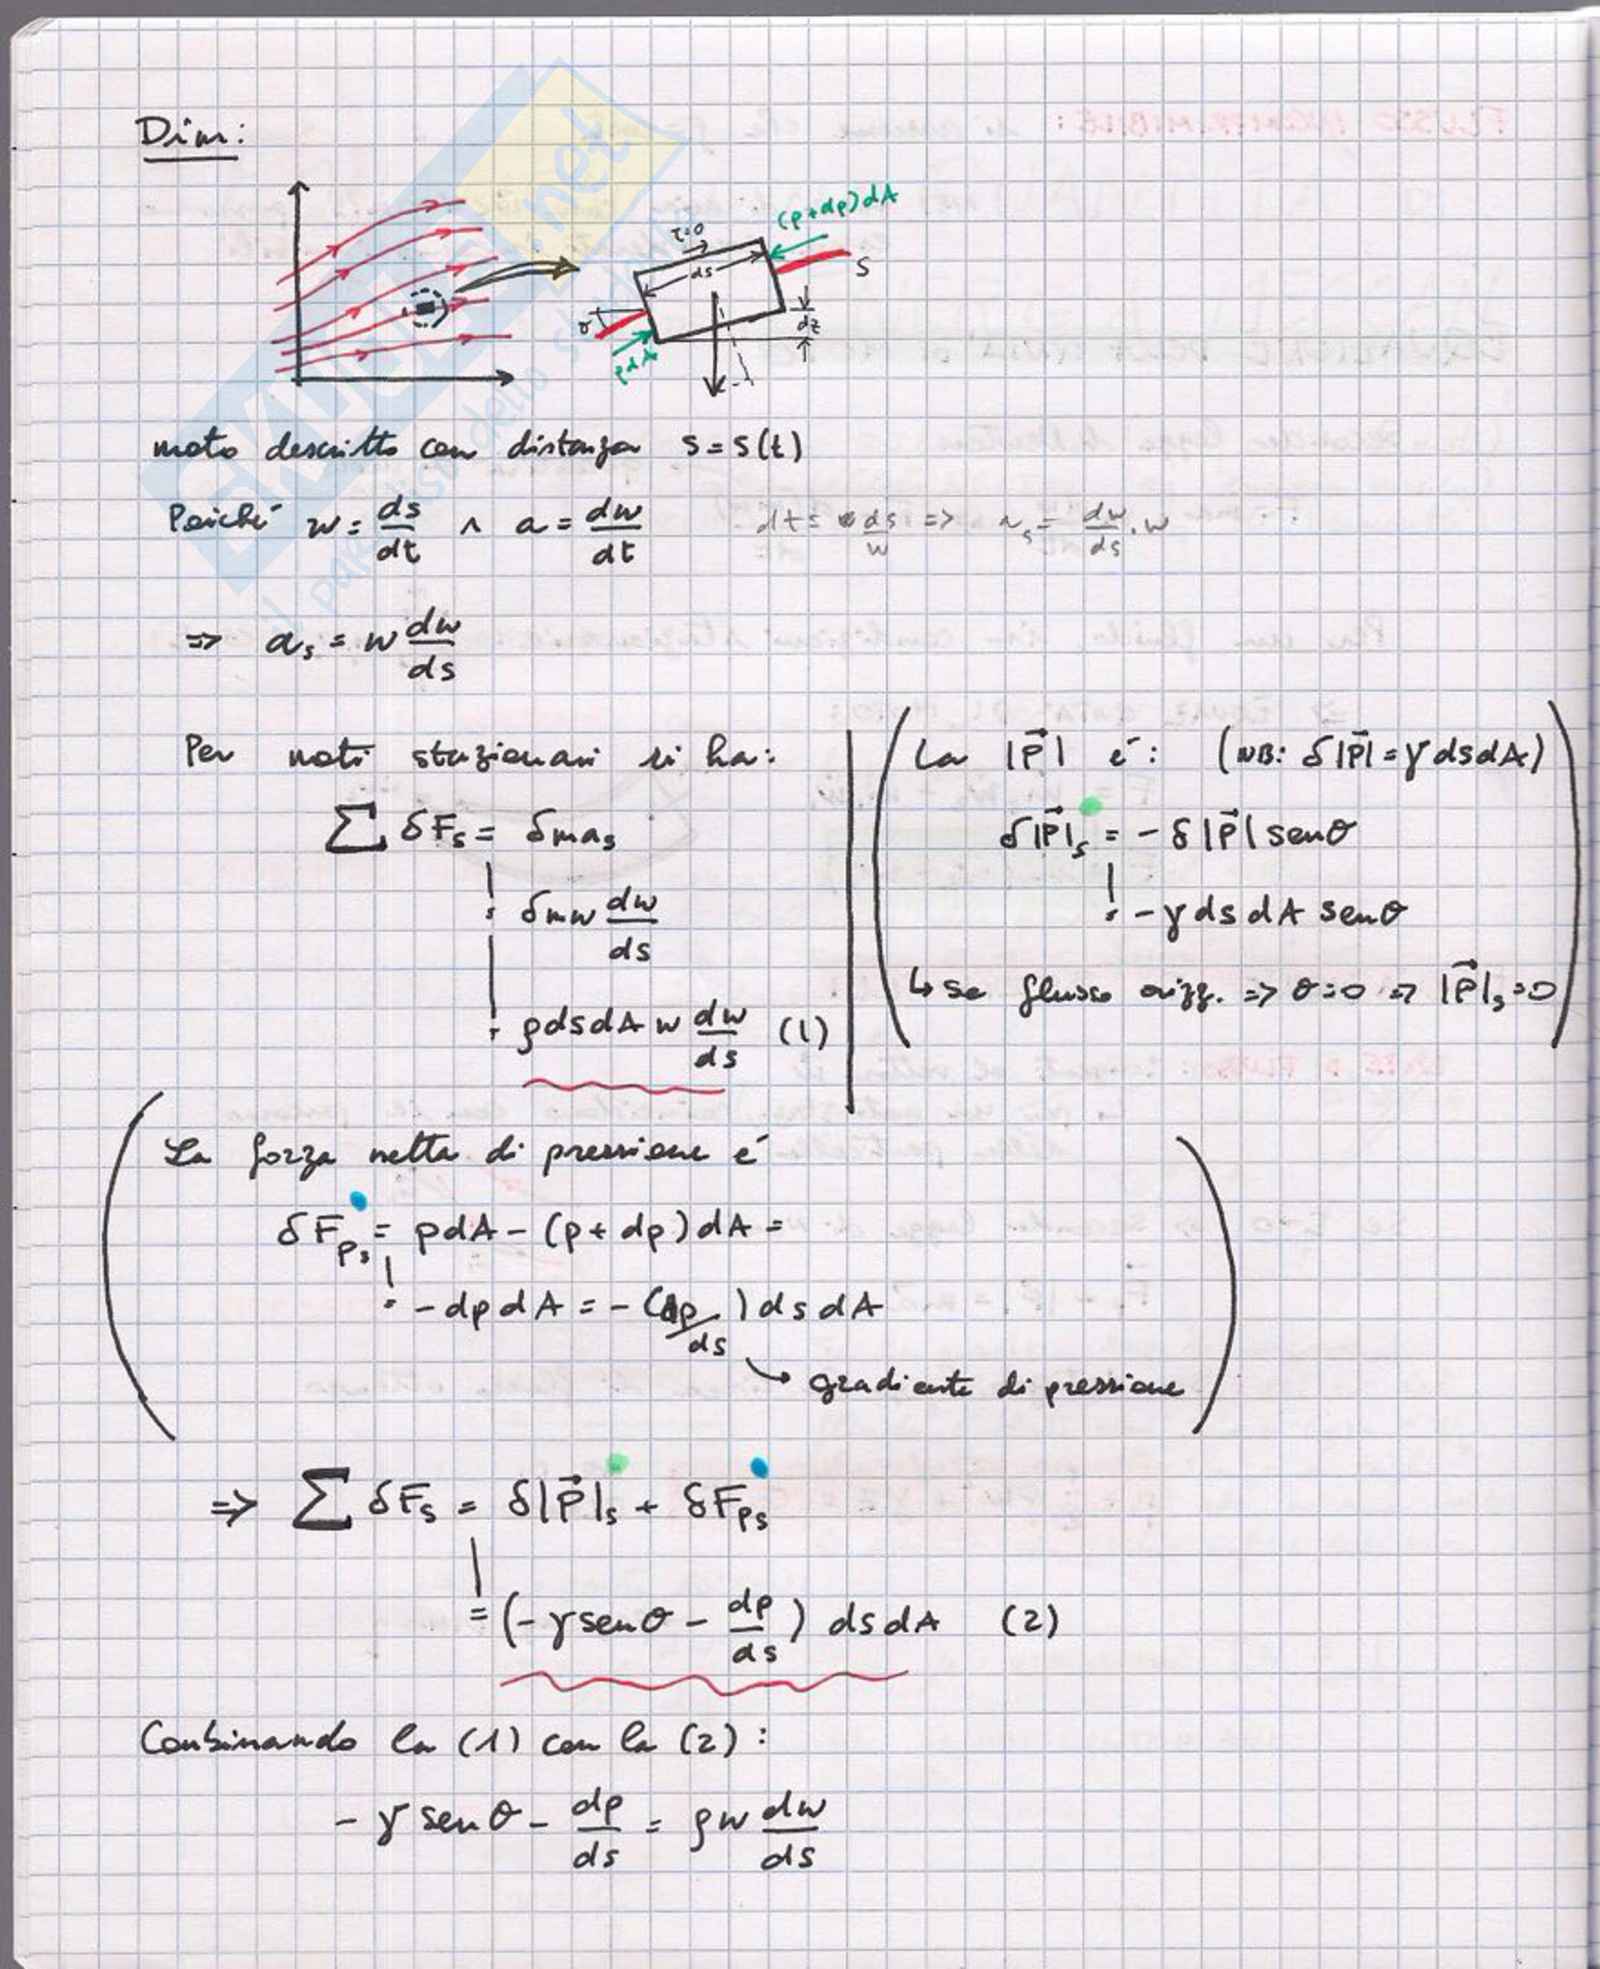 Dim:
τ=0
(p+dp)dA
ds
S
dz
θ
pdA
moto descritto con distanza s=s(t)
Poiché w = ds/dt ∧ a = dw/dt
dt = ds/w => a_s = dw/ds · w
=> a_s = w dw/ds
Per moti stazionari si ha:
∑ δF_s = δm a_s
= δm w dw/ds
= ρ ds dA w dw/ds (1)
La |P⃗| é: (NB: δ|P⃗| = γ ds dA)
δ|P⃗|_s = - δ|P⃗| senθ
= - γ ds dA senθ
↳ se flusso orizz. => θ=0 => |P⃗|_s=0
La forza netta di pressione é
δF_ps = pdA - (p+dp)dA =
= - dp dA = - (dp/ds) ds dA
↳ gradiente di pressione
=> ∑ δF_s = δ|P⃗|_s + δF_ps
= (- γ senθ - dp/ds) ds dA (2)
Combinando la (1) con la (2):
- γ senθ - dp/ds = ρ w dw/ds